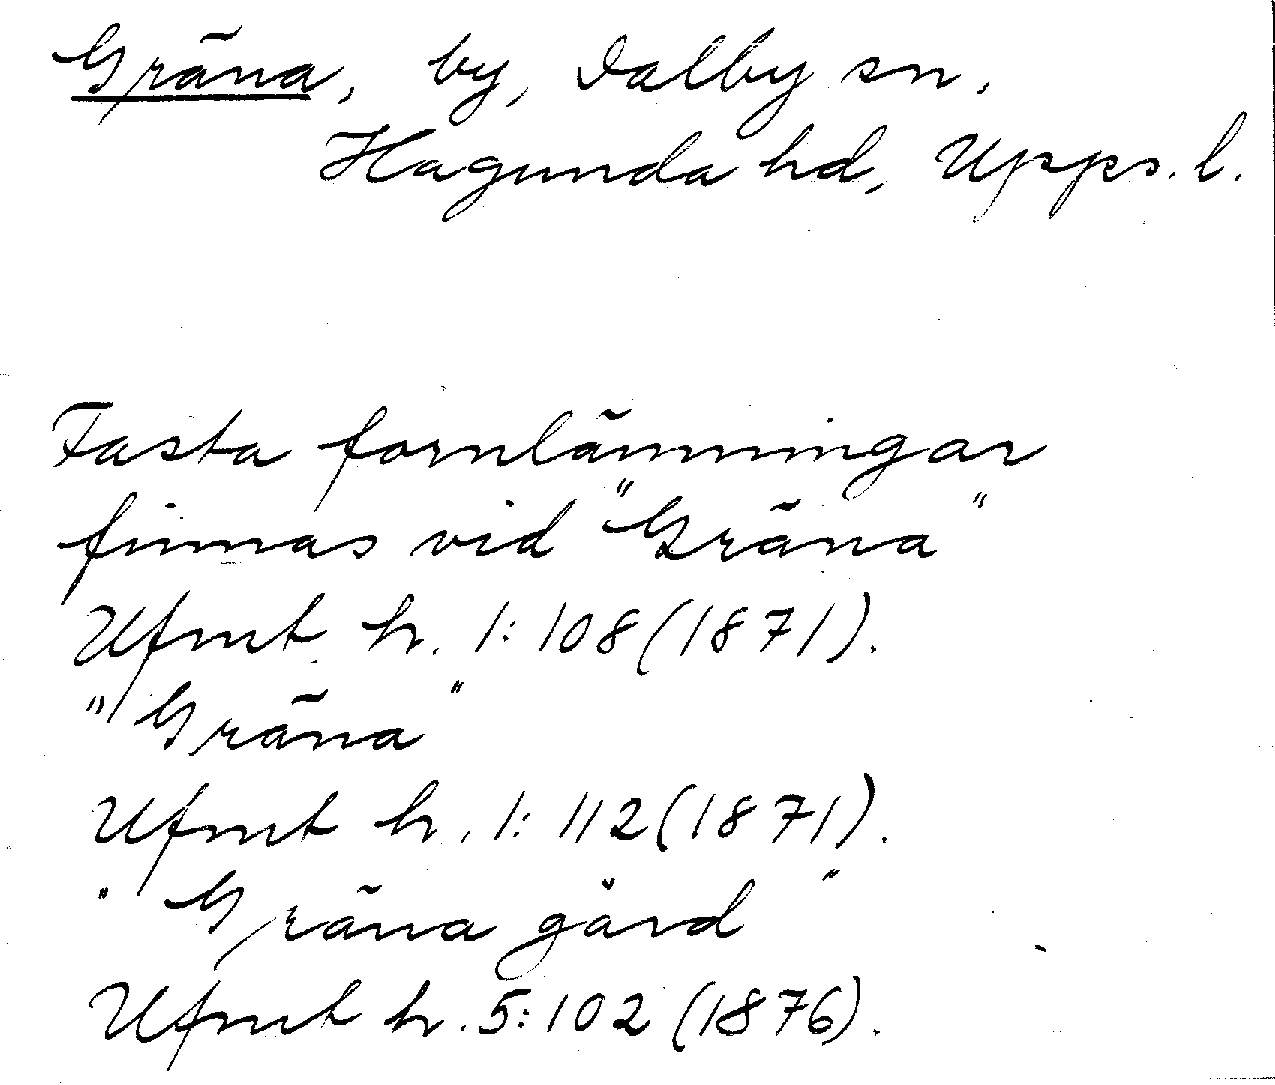 Gräna, by, Dalby sn.
Hagunda hd, Upps. l.
Fasta fornlämningar
finnas vid "Gräna"
Ufmt h. 1:108 (1871).
"Gräna"
Ufmt h. 1:112 (1871).
"Gräna gård"
Ufmt h. 5:102 (1876).